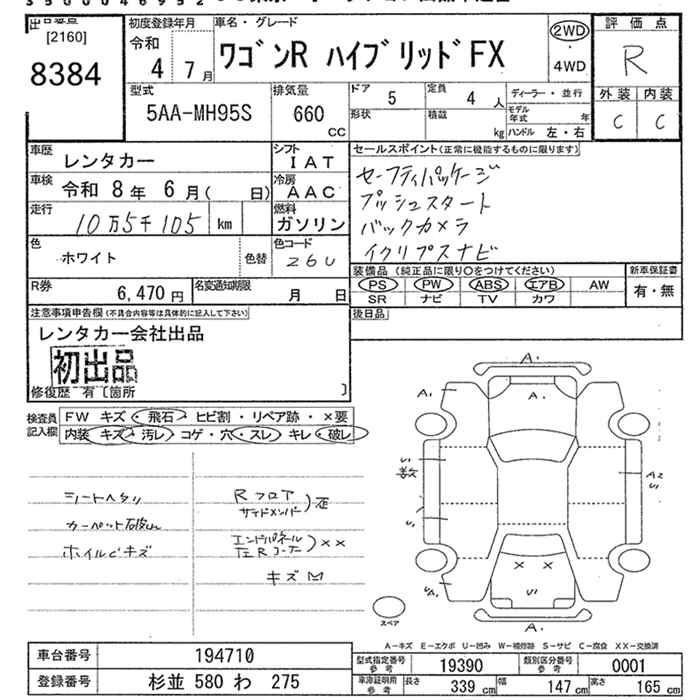 [2160]
8384
初度登録年月
令和 4 7月
車名・グレード
ワゴンR ハイブリッドFX
2WD
・
4WD
評価点
R
外装 内装
C C
型式
5AA-MH95S
排気量
660
CC
ドア 5
定員 4 人
形状
積載 kg
ディーラー・並行
モデル年式 年
ハンドル 左・右
車歴
レンタカー
車検
令和 8年 6月( 日)
走行
10万5千105 km
シフト
IAT
冷房
AAC
燃料
ガソリン
セールスポイント(正常に機能するものに限ります)
セーフティパッケージ
プッシュスタート
バックカメラ
イクリプスナビ
色
ホワイト
色替
色コード
26U
R券
6,470円
名変通知期限
月 日
装備品(純正品に限り○をつけてください)
PS PW ABS エアB AW
SR ナビ TV カワ
新車保証書
有・無
注意事項申告欄(不具合内容等は具体的に記入して下さい)
レンタカー会社出品
初出品
修復歴 有〔箇所 〕
後日品
検査員
記入欄
FW キズ・飛石・ヒビ割・リペア跡・×要
内装 キズ・汚レ・コゲ・穴・スレ・キレ・破レ
シートヘタリ
ホイルCキズ
Rフロア
サイドメンバー
エンドパネル
左Rコーナー
××
キズ
A・
A・
A2
× ×
A・
スペア
A-キズ E-エクボ U-凹み W-補修跡 S-サビ C-腐食 XX-交換済
車台番号 194710
登録番号 杉並 580 わ 275
型式指定番号 参考 19390
類別区分番号 参考 0001
車庫証明用 参考
長さ 339 cm
幅 147 cm
高さ 165 cm